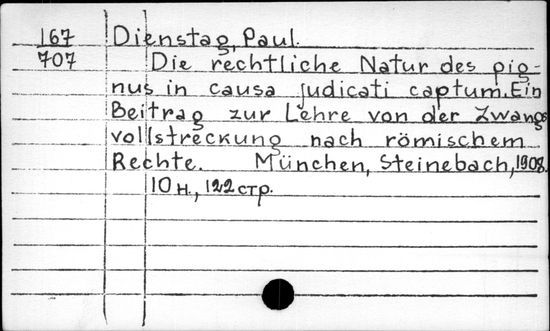 167 Dienstag, Paul.
707 Die rechtliche Natur des pig-
nus in causa judicati captum. Ein
Beitrag zur Lehre von der Zwangs
vollstreckung nach römischem
Rechte. München, Steinebach, 1908.
10 н., 122 стр.